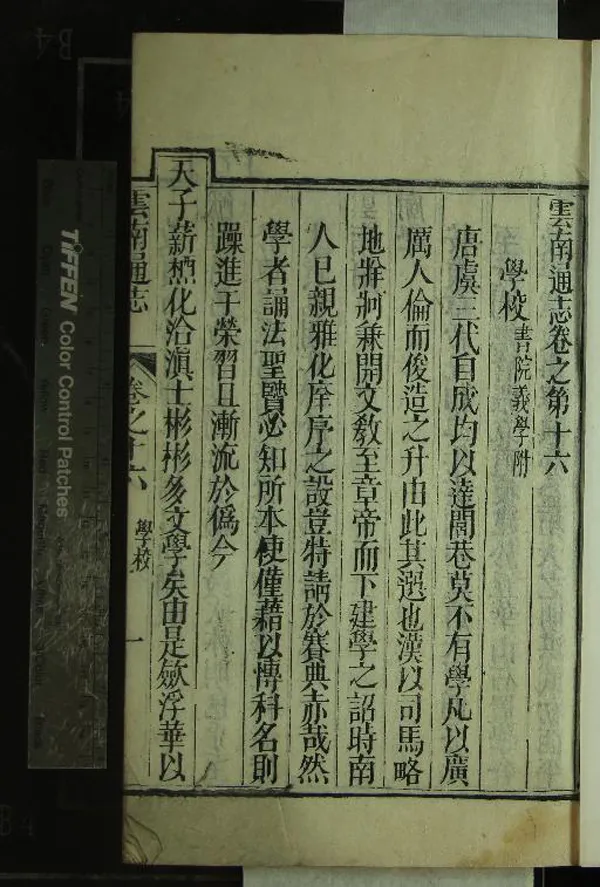 雲南通志卷之第十六
學校 書院義學附
唐虞三代自成均以達閭巷莫不有學凡以廣
厲人倫而俊造之升由此其選也漢以司馬略
地牂牁兼開文敎至章帝而下建學之詔時南
人已親雅化庠序之設豈特請於賽典赤哉然
學者誦法聖賢必知所本使僅藉以博科名則
躁進干榮習且漸流於僞今
天子薪槱化洽滇士彬彬多文學矣由是斂浮華以
雲南通志
卷之十六
學校
一
TIFFEN Color Control Patches